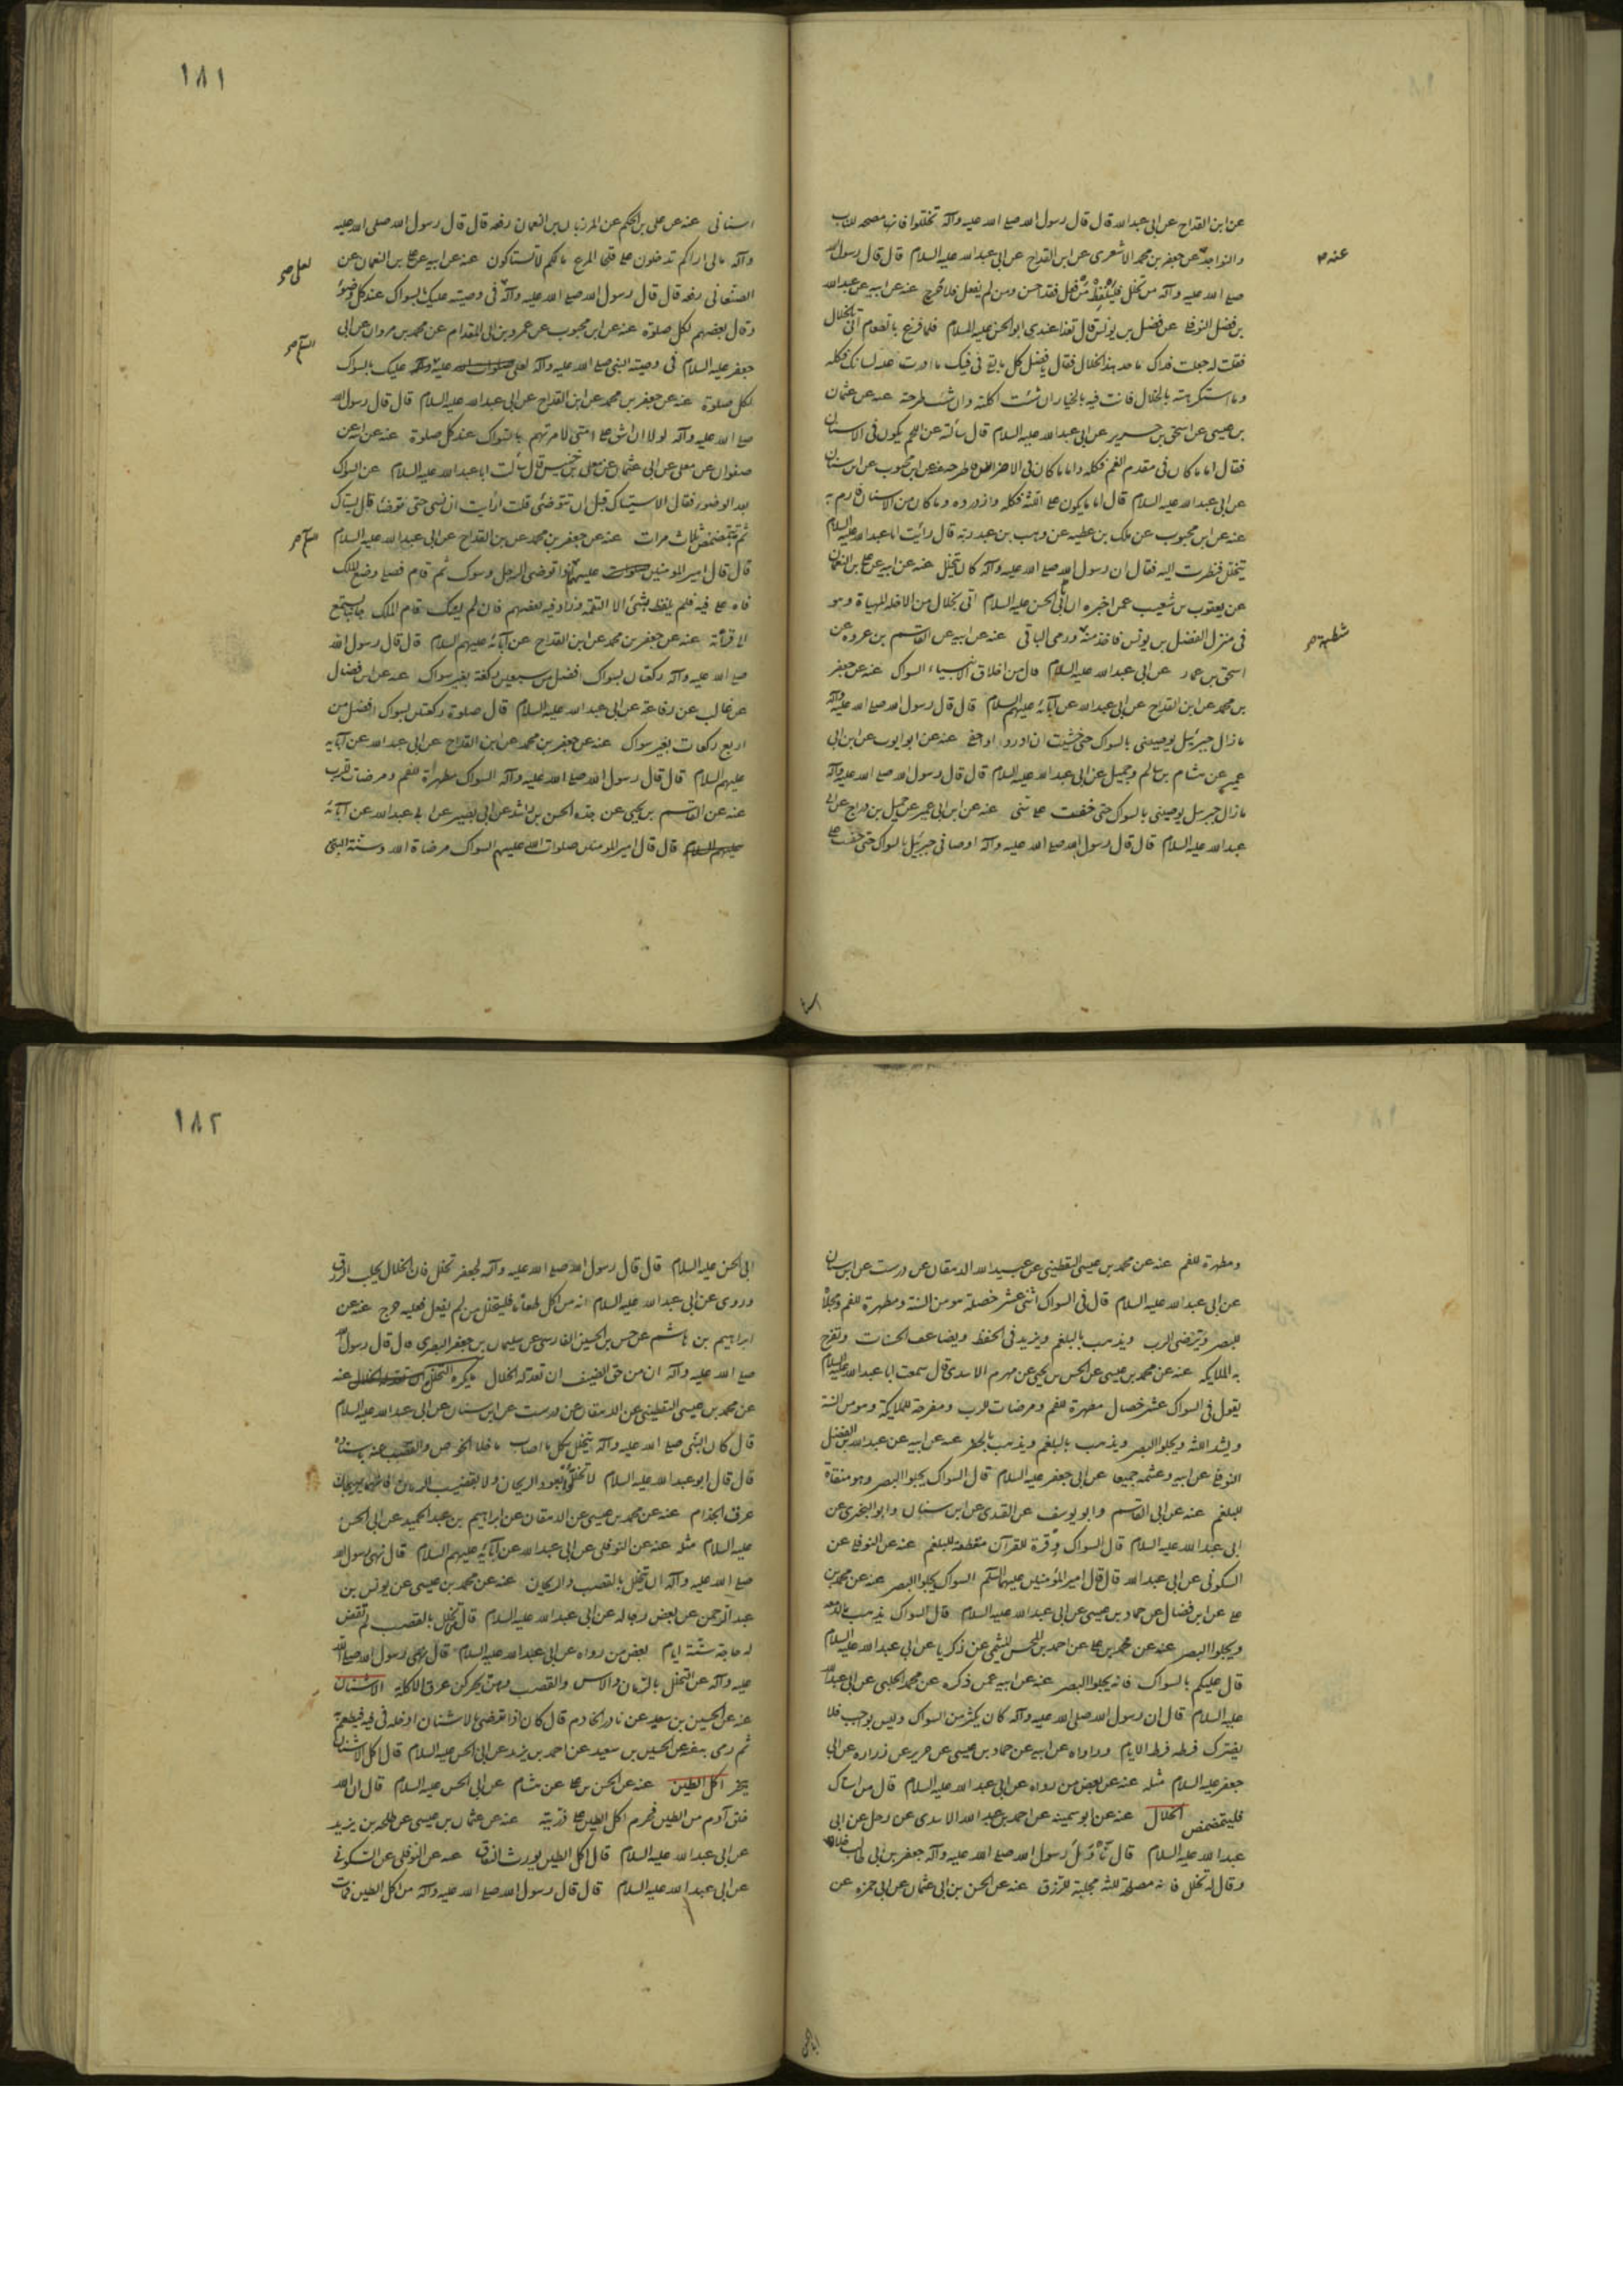 عن ابن القداح عن ابى عبد الله قال قال رسول الله صلى الله عليه وآله تخللوا فانه مصحة للناب
والنواجد عن جعفر بن محمد الاشعرى عن ابن القداح عن ابى عبد الله عليه السلام قال قال رسول الله
عنه
صلى الله عليه وآله من تخلل فليلفظ من فعل فقد احسن ومن لم يفعل فلا حرج عنه عن ابيه عن عبد الله
بن فضل النوفلى عن فضل بن يونس قال تغدا عندى ابو الحسن عليه السلام فلما فرغ ما الطعام اتى بالخلال
فقلت له جعلت فداك ما حد هذا الخلال فقال يا فضل كل ما بقى فى فيك ما ادرت عليه لسانك فكله
وما استكرهته بالخلال فانت فيه بالخيار ان شئت اكلته وان شئت طرحته عنه عن عثمان
بن عيسى عن اسحق بن جرير عن ابى عبد الله عليه السلام قال سألته عن اللحم يكون فى الاسنان
فقال اما ما كان فى مقدم الفم فكله واما ما كان فى الاضراس فاطرحه عنه عن ابن محبوب عن ابن سنان
عن ابى عبد الله عليه السلام قال اما ما يكون على اللثة فكله وازدرده وما كان من الاسنان فارم به
عنه عن ابن محبوب عن ملك بن عطيه عن وهب بن عبد ربه قال رأيت ابا عبد الله عليه السلام
يتخلل فنظرت اليه فقال ان رسول الله صلى الله عليه وآله كان يتخلل عنه عن ابيه عن على بن النعمان
عن يعقوب بن شعيب عمن اخبره ان ابى الحسن عليه السلام اتى بخلال من الاخلة المهياة وهو
فى منزل الفضل بن يونس فاخذ منه ورمى الباقى عنه عن ابيه عن القاسم بن عروه عن
شظية
اسحق بن عمار عن ابى عبد الله عليه السلام قال من اخلاق الانبياء السواك عنه عن جعفر
بن محمد عن ابن القداح عن ابى عبد الله عن آبائه عليهم السلام قال قال رسول الله صلى الله عليه وآله
ما زال جبرئيل يوصينى بالسواك حتى خشيت ان ادرد او احفى عنه عن ابو ايوب عن ابن ابى
عمير عن هشام بن سالم وجميل عن ابى عبد الله عليه السلام قال قال رسول الله صلى الله عليه وآله
ما زال جبرئيل يوصينى بالسواك حتى خفت على سنى عنه عن ابن ابى عمير عن جميل بن دراج عن ابى
عبد الله عليه السلام قال قال رسول الله صلى الله عليه وآله اوصانى جبرئيل بالسواك حتى خفت على
١٨١
اسنانى عنه عن على بن الحكم عن المرزبان بن النعمان رفعه قال قال رسول الله صلى الله عليه
وآله ما لى اراكم تدخلون على قلحا المرج ما لكم لا تستاكون عنه عن ابيه عن على بن النعمان عن
الصنعانى رفعه قال قال رسول الله صلى الله عليه وآله فى وصيته عليك بالسواك عند كل وضوء
لعلى صح
وقال بعضهم لكل صلوة عنه عن ابن محبوب عن عمرو بن ابى المقدام عن محمد بن مروان عن ابى
جعفر عليه السلام فى وصية النبى صلى الله عليه وآله لعلى عليه عليك بالسواك
لكل صلوة عنه عن جعفر بن محمد عن ابن القداح عن ابى عبد الله عليه السلام قال قال رسول الله
صلى الله عليه وآله لولا ان اشق على امتى لامرتهم بالسواك عند كل صلوة عنه عن ابيه عن
صفوان عن معلى عن ابى عثمان عن معلى بن خنيس قال سألت ابا عبد الله عليه السلام عن السواك
بعد الوضوء فقال الاستياك قبل ان تتوضئ قلت ارأيت ان نسى حتى توضئا قال يستاك
ثم يتمضمض ثلاث مرات عنه عن جعفر بن محمد عن ابن القداح عن ابى عبد الله عليه السلام
قال قال امير المؤمنين عليه اذا توضى الرجل وسوك ثم قام فصلى وضع الملك
فاه على فيه فلم يلفظ بشئ الا التقمه وزاد فيه بعضهم فان لم يستك قام الملك جانبا يستمع
الى قرأته عنه عن جعفر بن محمد عن ابن القداح عن آبائه عليهم السلام قال قال رسول الله
صلى الله عليه وآله ركعتان بسواك افضل من سبعين ركعة بغير سواك عنه عن ابن فضال
عن غالب عن رفاعة عن ابى عبد الله عليه السلام قال صلوة ركعتين بسواك افضل من
اربع ركعات بغير سواك عنه عن جعفر بن محمد عن ابن القداح عن ابى عبد الله عن آبائه
عليهم السلام قال قال رسول الله صلى الله عليه وآله السواك مطهرة للفم ومرضات للرب
عنه عن القاسم بن يحيى عن جده الحسن بن راشد عن ابى بصير عن ابى عبد الله عن آبائه
عليهم السلام قال قال امير المؤمنين صلوات الله عليهم السواك مرضاة الله وسنة النبى
ومطهرة للفم عنه عن محمد بن عيسى اليقطينى عن عبيد الله الدهقان عن درست عن ابن سنان
عن ابى عبد الله عليه السلام قال فى السواك اثنى عشر خصلة هو من السنة ومطهرة للفم ومجلاة
للبصر ويرضى الرب ويذهب بالبلغم ويزيد فى الحفظ ويضاعف الحسنات وتفرح
به الملايكه عنه عن محمد بن عيسى عن الحسن بن يحيى عن مهزم الاسدى قال سمعت ابا عبد الله عليه السلام
يقول فى السواك عشر خصال مطهرة للفم ومرضات للرب ومفرحة للملايكة وهو من السنة
ويشد اللثه ويجلو البصر ويذهب بالبلغم ويذهب بالحفر عنه عن ابيه عن عبد الله بن الفضل
النوفلى عن ابيه وعثمه جميعا عن ابى جعفر عليه السلام قال السواك يجلو البصر وهو منقاة
للبلغم عنه عن ابى القاسم وابو يوسف عن القندى عن ابن سنان وابو البخترى عن
ابى عبد الله عليه السلام قال السواك وقرة للقرآن مقطعة للبلغم عنه عن النوفلى عن
السكونى عن ابى عبد الله قال قال امير المؤمنين عليهما السلم السواك يجلو البصر عنه عن محمد بن
على عن ابن فضال عن حماد بن عيسى عن ابى عبد الله عليه السلام قال السواك يذهب بالدمعه
ويجلو البصر عنه عن محمد بن على عن احمد بن المحسن الميثمى عن زكريا عن ابى عبد الله عليه السلام
قال عليكم بالسواك فانه يجلو البصر عنه عن ابيه عمن ذكره عن محمد الحلبى عن ابى عبد الله
عليه السلام قال ان رسول الله صلى الله عليه وآله كان يكثر من السواك وليس بواجب فلا
يضرك فرطه فرط الايام ورواه عن ابيه عن حماد بن عيسى عن حريز عن زراره عن ابى
جعفر عليه السلام مثله عنه عن بعض من رواه عن ابى عبد الله عليه السلام قال من استاك
فليتمضمض الخلال عنه عن ابو سمينه عن احمد بن عبد الله الاسدى عن رجل عن ابى
عبد الله عليه السلام قال ناول رسول الله صلى الله عليه وآله جعفر بن ابى طالب خلالا
وقال له تخلل فانه مصلحة للثة مجلبة للرزق عنه عن الحسن بن ابى عثمان عن ابى حمزه عن
١٨٢
ابى الحسن عليه السلام قال قال رسول الله صلى الله عليه وآله لجعفر تخلل فان الخلال يجلب الرزق
وروى عن ابى عبد الله عليه السلام انه من اكل طعاما فليتخلل من لم يفعل فعليه حرج عنه عن
ابراهيم بن هاشم عن حسن بن الحسين الفارسى عن سليمان بن جعفر البصرى قال قال رسول الله
صلى الله عليه وآله ان من حق الضيف ان تعد له الخلال يكره التخلل عنه
عن محمد بن عيسى اليقطينى عن الدهقان عن درست عن ابن سنان عن ابى عبد الله عليه السلام
قال كان النبى صلى الله عليه وآله يتخلل بكل ما اصاب ما خلا الخوص والقصب عنه
قال قال ابو عبد الله عليه السلام لا تخللوا بعود الريحان ولا بقضيب الرمان فانهما يهيجان
عرق الجذام عنه عن محمد بن عيسى عن الدهقان عن ابراهيم بن عبد الحميد عن ابى الحسن
عليه السلام مثله عنه عن النوفلى عن ابى عبد الله عن آبائه عليهم السلام قال نهى رسول الله
صلى الله عليه وآله ان تخلل بالقصب والريحان عنه عن محمد بن عيسى عن يونس بن
عبد الرحمن عن بعض رجاله عن ابى عبد الله عليه السلام قال من تخلل بالقصب لم تقض
له حاجة ستة ايام بعض من رواه عن ابى عبد الله عليه السلام قال نهى رسول الله صلى الله
عليه وآله عن التخلل بالرمان والاس والقصب وهن يحركن عرق الاكلة الاشنان
عنه عن الحسين بن سعيد عن نادر الخادم قال كان اذا توضئ بالاشنان ادخله فى فيه فيطعمه
ثم رمى به عنه عن الحسين بن سعيد عن احمد بن يزيد عن ابى الحسن عليه السلام قال اكل الاشنان
يبخر اكل الطين عنه عن الحسن بن على عن هشام عن ابى الحسن عليه السلام قال ان الله
خلق آدم من الطين فحرم اكل الطين على ذريته عنه عن عثمان بن عيسى عن طلحه بن يزيد
عن ابى عبد الله عليه السلام قال اكل الطين يورث النفاق عنه عن النوفلى عن السكونى
عن ابى عبد الله عليه السلام قال قال رسول الله صلى الله عليه وآله من اكل الطين فمات